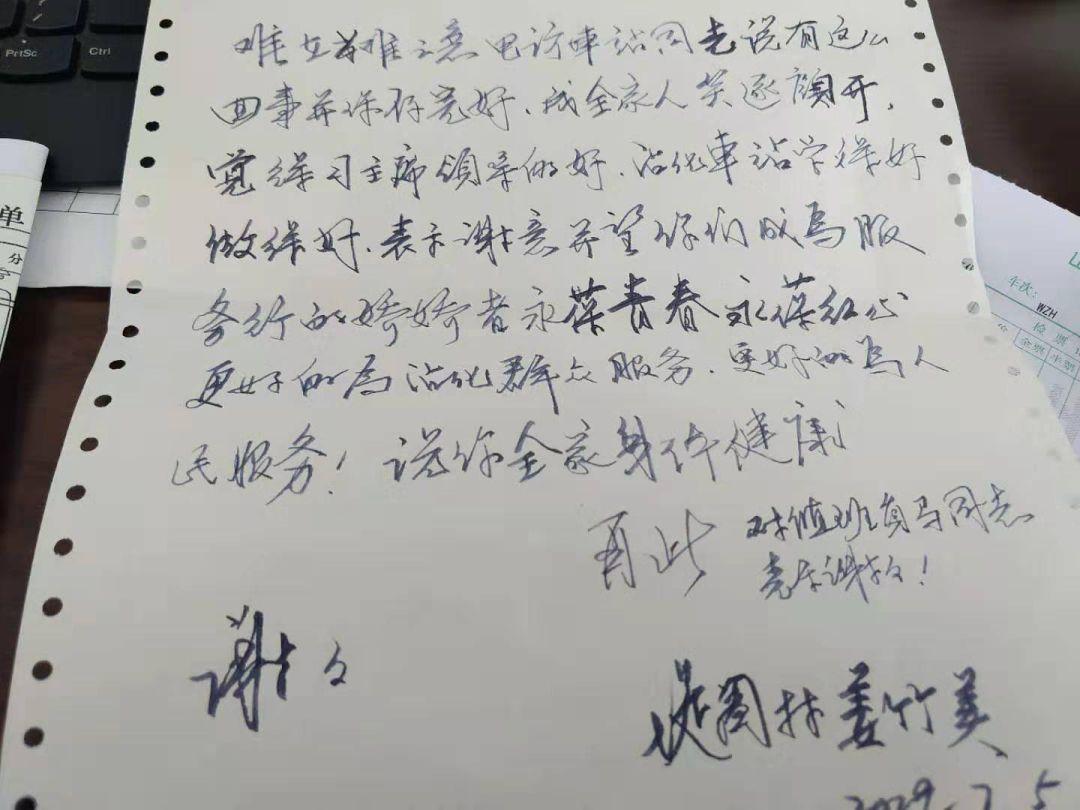 PrtSc
Ctrl
单
分
车次:
WZH
检票
全票
半票
难之意电话車站同志说有这么
回事并保存完好、我全家人笑逐颜开，
觉得习主席领导的好、沾化車站学得好
做得好、表示谢意并望你们成為服
务行的娇娇者永葆青春永葆红心
更好的為沾化群众服务、更好的為人
民服务！祝你全家身体健康
再此
对值班员马同志
表示谢意！
谢谢
姜竹美
7.5